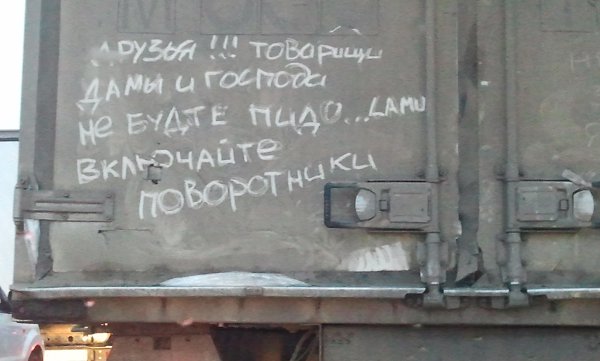 ДРУЗЬЯ !!! ТОВАРИЩИ
ДАМЫ И ГОСПОДА
НЕ БУДТЕ ПИДО...САМИ
ВКЛЮЧАЙТЕ
ПОВОРОТНИКИ